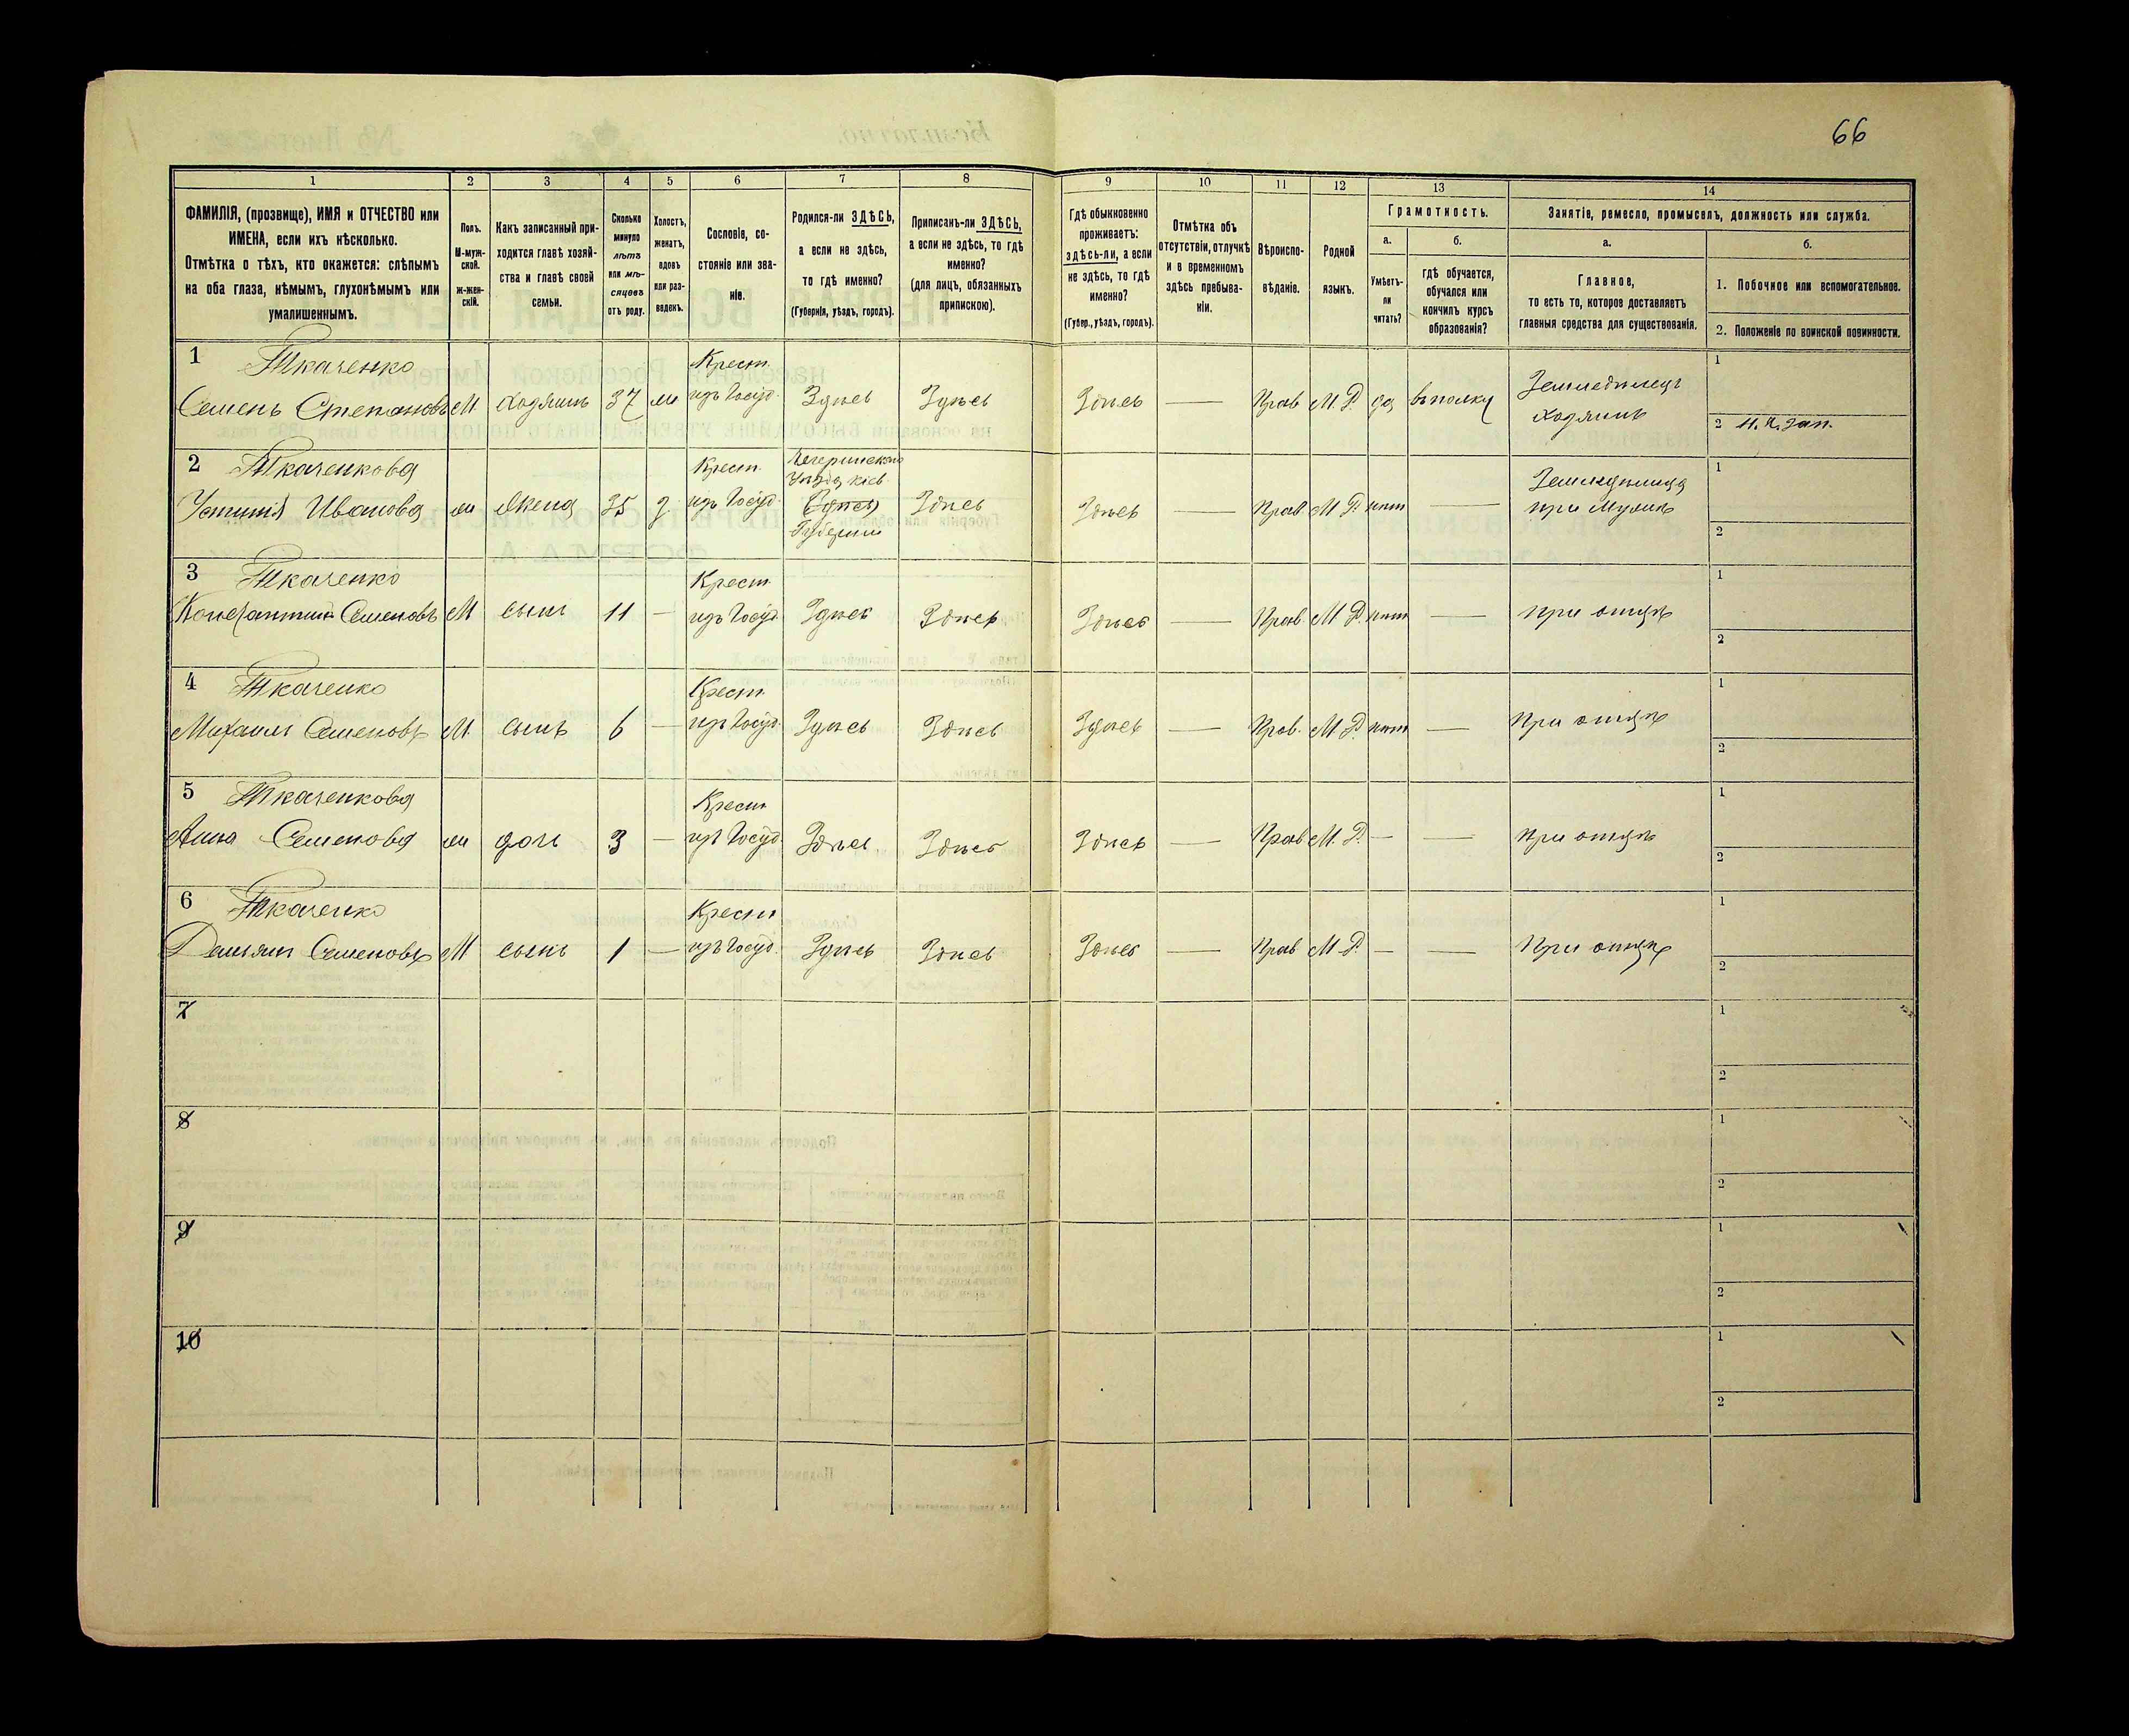 66
1
2
3
4
5
6
7
8
9
10
11
12
13
14
ФАМИЛІЯ, (прозвище), ИМЯ и ОТЧЕСТВО или
ИМЕНА, если ихъ нѣсколько.
Отмѣтка о тѣхъ, кто окажется: слѣпымъ
на оба глаза, нѣмымъ, глухонѣмымъ или
умалишеннымъ.
Полъ.
М-муж-
ской.
ж-жен-
скій.
Какъ записанный при-
ходится главѣ хозяй-
ства и главѣ своей
семьи.
Сколько
минуло
лѣтъ
или мѣ-
сяцевъ
отъ роду.
Холостъ,
женатъ,
вдовъ
или раз-
веденъ.
Сословіе, со-
стояніе или зва-
ніе.
Родился-ли ЗДѢСЬ,
а если не здѣсь,
то гдѣ именно?
(Губернія, уѣздъ, городъ).
Приписанъ-ли ЗДѢСЬ,
а если не здѣсь, то гдѣ
именно?
(для лицъ, обязанныхъ
припискою).
Гдѣ обыкновенно
проживаетъ:
здѣсь-ли, а если
не здѣсь, то гдѣ
именно?
(Губер., уѣздъ, городъ).
Отмѣтка объ
отсутствіи, отлучкѣ
и о временномъ
здѣсь пребыва-
ніи.
Вѣроиспо-
вѣданіе.
Родной
языкъ.
Грамотность.
а.
Умѣетъ-
ли
читать?
б.
гдѣ обучается,
обучался или
кончилъ курсъ
образованія?
Занятіе, ремесло, промыселъ, должность или служба.
а.
Главное,
то есть то, которое доставляетъ
главныя средства для существованія.
б.
1. Побочное или вспомогательное.
2. Положеніе по воинской повинности.
1 Ткаченко
Семенъ Степановъ М. хозяинъ 37 ж
Крест.
изъ Госуд. Здѣсь Здѣсь Здѣсь — Прав М. Р. да въ полку
Земледѣлецъ
хозяинъ
1
2 Н. Ч. Зап.
2 Ткаченкова
Устинія Иванова ж жена 35 з
Крест.
изъ Госуд.
Чегеринскаго
Уѣзда Кіев.
Здѣсь
Губерніи
Здѣсь Здѣсь — Прав М Р нѣт —
Земледѣлица
при Мужѣ
1
2
3 Ткаченко
Константинъ Семеновъ М сынъ 11 —
Крест
изъ Госуд. Здѣсь Здѣсь Здѣсь — Прав. М Р. нѣт — при отцѣ
1
2
4 Ткаченко
Михаилъ Семеновъ М. сынъ 6 —
Крест.
изъ Госуд. Здѣсь Здѣсь Здѣсь — Прав. М Р. нѣт — при отцѣ
1
2
5 Ткаченкова
Анна Семенова ж дочь 3 —
Крест
изъ Госуд. Здѣсь Здѣсь Здѣсь — Прав М. Р. — — при отцѣ
1
2
6 Ткаченко
Демьянъ Семеновъ М сынъ 1 —
Крест
изъ Госуд. Здѣсь Здѣсь Здѣсь — Прав М Р. — — При отцѣ
1
2
7
1
2
8
1
2
9
1
2
10
1
2